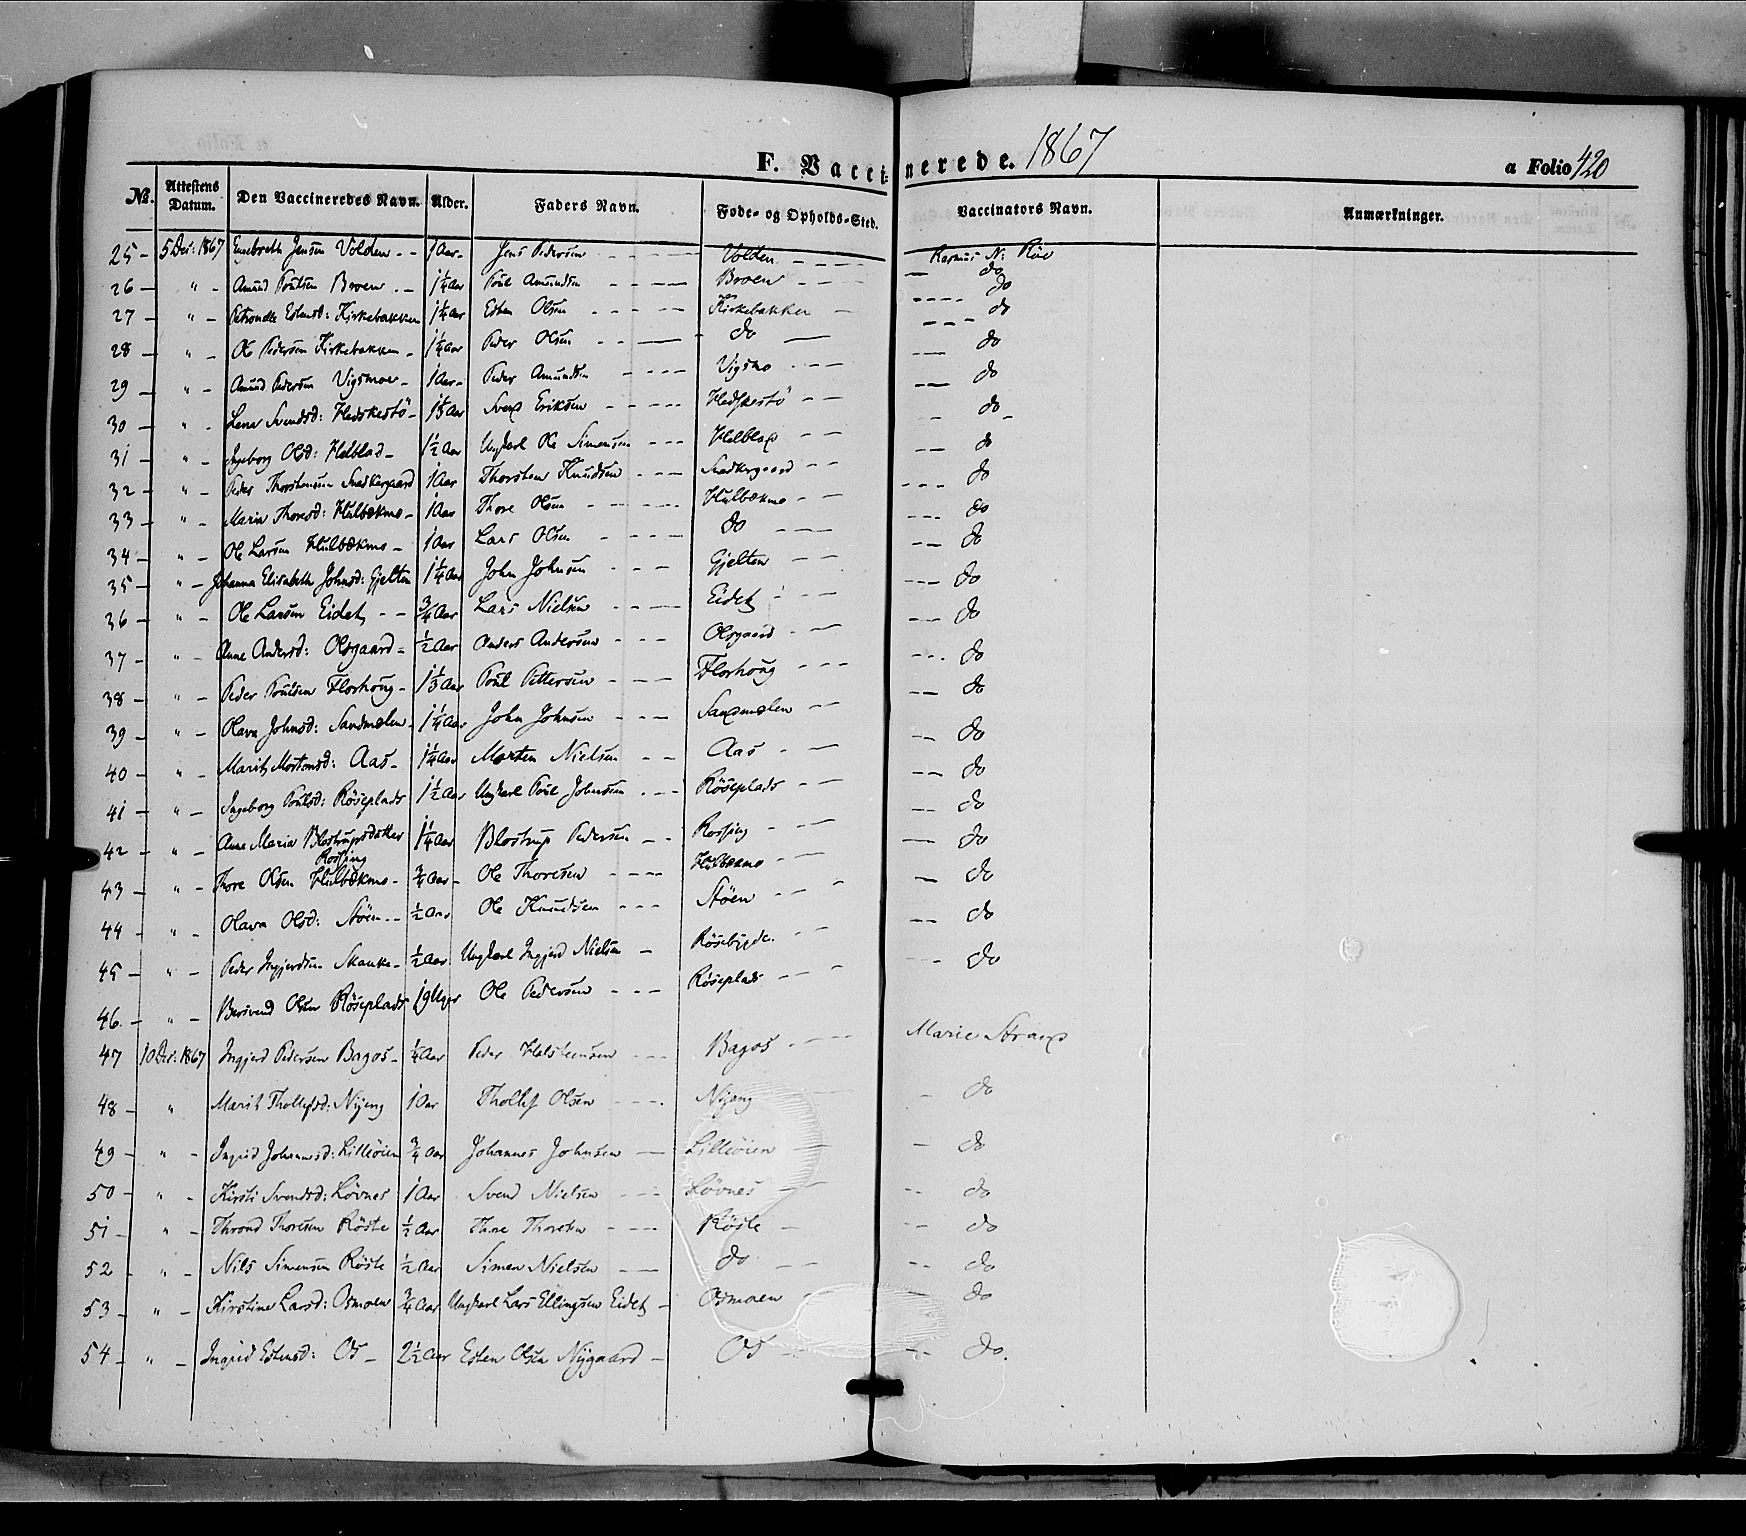 F. Vaccinerede. 1867
a Folio 420
№. Attestens Datum. Den Vaccineredes Navn. Alder. Faders Navn. Føde- og Opholds-Sted. Vaccinators Navn. Anmærkninger.
25 - 5 Des: 1867 Engebreth Jensen Volden - - 1 Aar - Jens Pedersen - - - - Volden - - - - Rasmus N: Röe
26 - " - Amund Poulsen Broen - - 1 1/4 Aar Poul Amundsen - - - - Broen - - - - do
27 - " - Petronelle Estensd: Kirkebakken 1 1/4 Aar Esten Olsen - - - - Kirkebakken - - - - do
28 - " - Ole Pedersen Kirkebakken - 1 1/4 Aar Peder Olsen - - - do - - do
29 - " - Amund Pedersen Vigsmoe - 1 Aar - Peder Amundsen - - - - Vigsmo - - - do
30 - " - Lena Svendsd: Hedskestö - 1 1/3 Aar Svend Eriksen - - - - - - - do -
31 - " - Ingeborg Olsd: - 1 1/2 Aar Ungkarl Ole Simensen - - - - - - do
32 - " - Peder Thorstensen Snedkergaard 1 Aar Thorsten Knudsen - - - Snedkergaard - - - - do
33 - " - Marie Thoresd: Hulbækmo - 1 Aar Thore Olsen - - - - Hulbækmo - - - - do
34 - " - Ole Larsen Hulbækmo - 1 Aar Lars Olsen - - - - do - - - - do
35 - " - Johanna Elisabeth Johnsd: Gjelten 1 1/4 Aar John Johnsen - - - Gjelten - - - - do
36 - " - Ole Larsen Eidet - - 3/4 Aar Lars Nielsen - - - Eidet - - - - do
37 - " - Anne Andersd: Olsgaard - 1/2 Aar Anders Andersen - - - Olsgaard - - - - do
38 - " - Peder Poulsen Florhoug - 1 1/3 Aar Poul Pettersen - - - Florhoug - - - - do
39 - " - Olava Johnsd: Sandmælen - 1 1/4 Aar John Johnsen - - - Sandmælen - - - - do
40 - " - Marit Mortensd: Aas - 1 1/4 Aar Morten Nielsen - - Aas - - - - do
41 - " - Ingeborg Poulsd: Röseplads 1 1/2 Aar Ungkarl Poul Johnsen - - - Röseplads - - - - do
42 - " - Anne Maria Blostrupsdatter 1 1/4 Aar Blostrup Pedersen - - Rossing - - - do
Rossing
43 - " - Thore Olsen Hulbækmo - 3/4 Aar - Ole Thoresen - - - - Hulbækmo - - - do
44 - " - Olava Olsd: Støen - - 1/2 Aar Ole Knudsen - - - Støen - - - - - do
45 - " - Peder Ingjerdsen Skanke - 1/2 Aar Ungkarl Ingjerd Nielsen - Rösebygde. - - - - do
46 - " - Bersvend Olsen Röseplads 19 Uger Ole Pedersen - - - Röseplads - - -
47 10 Des: 1867 Ingjerd Pedersen Bagos - 1/4 Aar Peder Halsteensen - - - Bagos - - - - Marie Strand
48 - " Marit Thollefsd: Nijeng 1 Aar Thollef Olsen - - - Nijeng - do
49 - " - Ingrid Johannesd: Lilleöien 3/4 Aar Johannes Johnsen - - Lilleöien - - do
50 - " - Kirsti Svendsd: Lövnes 1 Aar Svend Nielsen - - - Lövnes - - - do
51 - " - Thrond Thoresen Röste 1/2 Aar Thore Thoresen - - - Röste - - - do
52 - " - Nils Simensen Röste 1/2 Aar Simen Nielsen - - do - - - - do
53 - " - Kirstine Larsd: Osmoen 3/4 Aar Ungkarl Lars Ellingsen Eidet - Osmoen - - do
54 - " - Ingrid Estensd: Os - 2 1/2 Aar Esten Olsen Nÿgaard - Os - - - do.